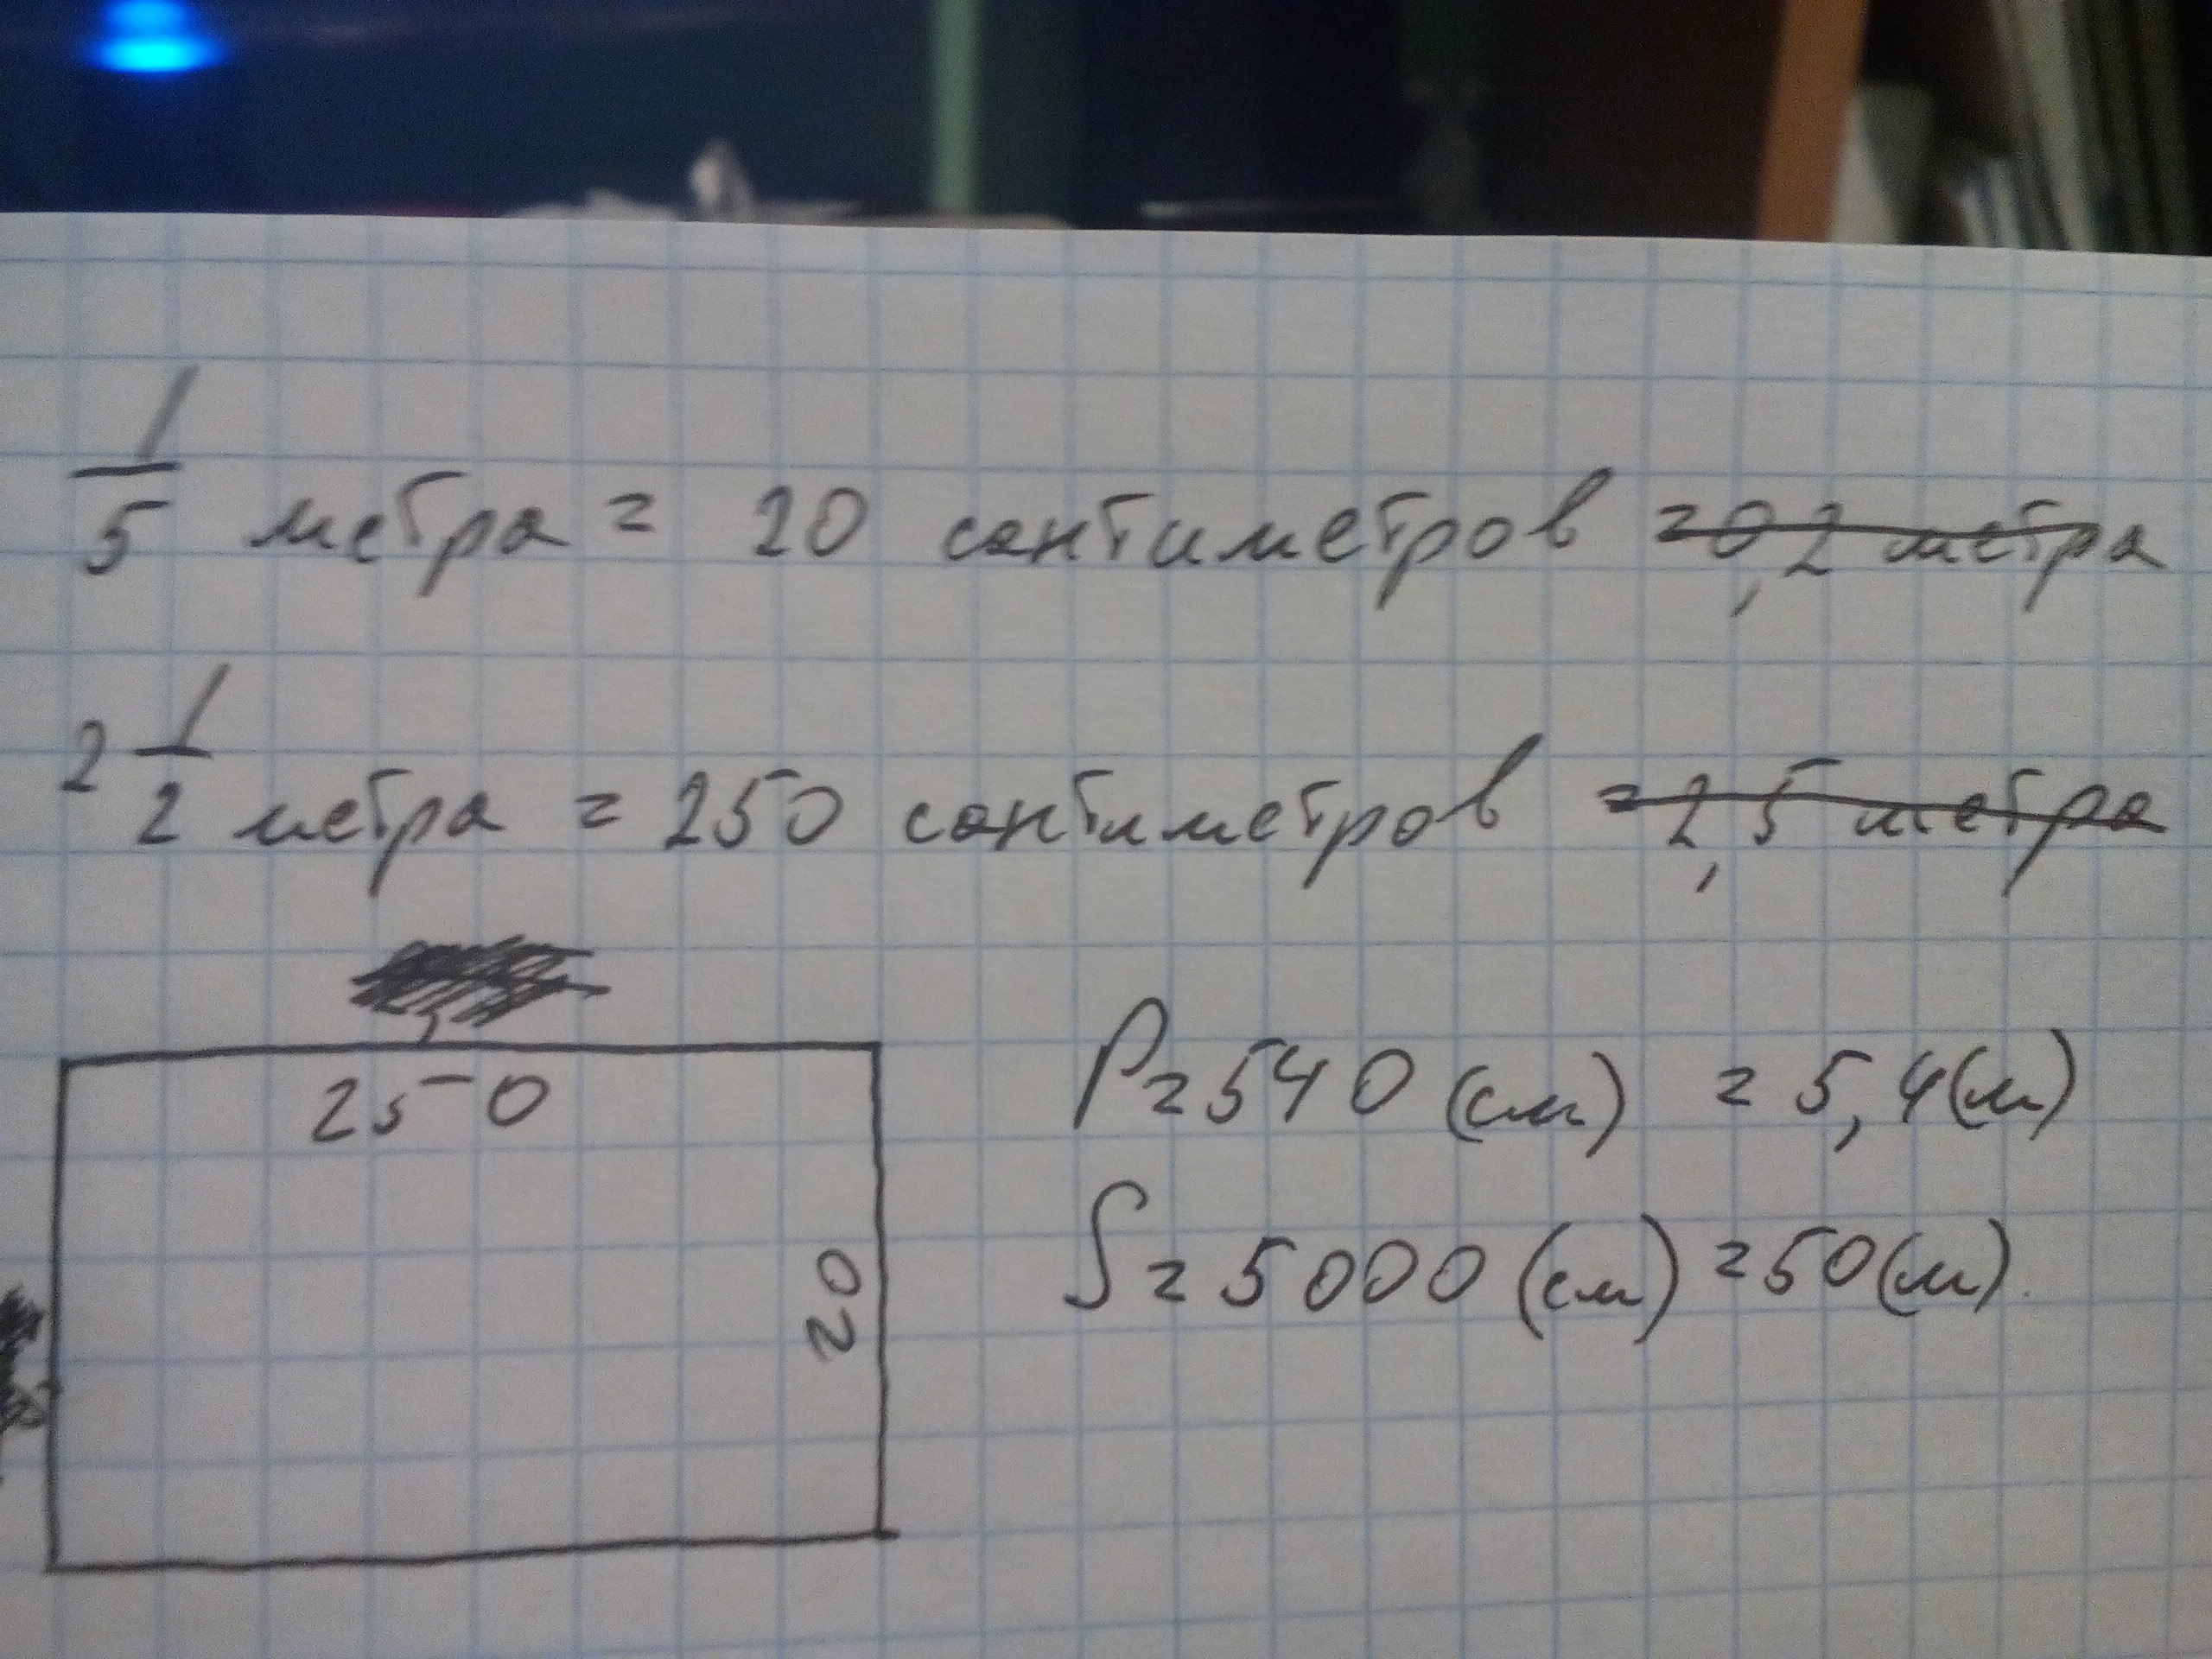 1/5 метра = 20 сантиметров = 0,2 метра
2 1/2 метра = 250 сантиметров = 2,5 метра
250
20
P = 540 (см) = 5,4 (м)
S = 5000 (см) = 50 (м).